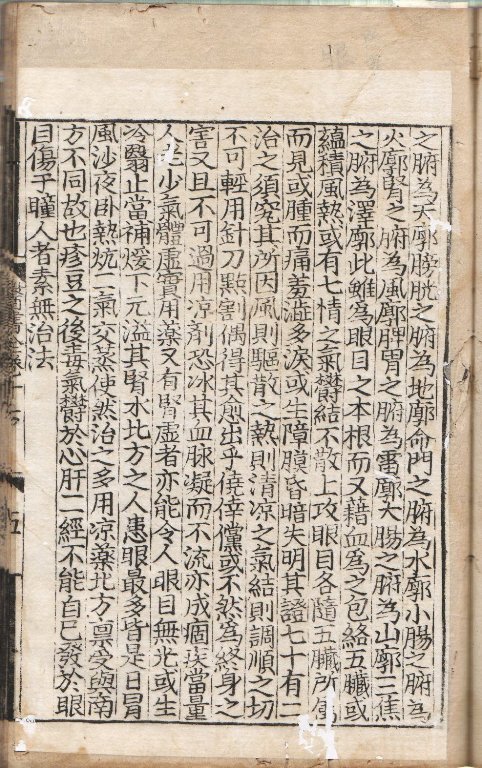 之腑為天廓膀胱之腑為地廓命門之腑為水廓小腸之腑為
火廓腎之腑為風廓脾胃之腑為雷廓大腸之腑為山廓三焦
之腑為澤廓此雖為眼目之本根而又藉血為之包絡五臟或
蘊積風熱或有七情之氣鬱結不散上攻眼目各隨五臟所屬
而見或腫而痛羞澁多淚或生障膜昏暗失明其證七十有二
治之須究其所因風則驅散之熱則清凉之氣結則調順之切
不可輕用針刀點割偶得其愈出乎僥倖儻或不然為終身之
害又且不可過用凉劑恐冰其血脉凝而不流亦成痼疾當量
人老少氣體虛實用藥又有腎虛者亦能令人眼目無光或生
冷翳止當補煖下元溢其腎水北方之人患眼最多皆是日冒
風沙夜臥熱炕二氣交蒸使然治之多用凉藥北方稟受與南
方不同故也疹豆之後毒氣鬱於心肝二經不能自已發於眼
目傷于瞳人者素無治法
五